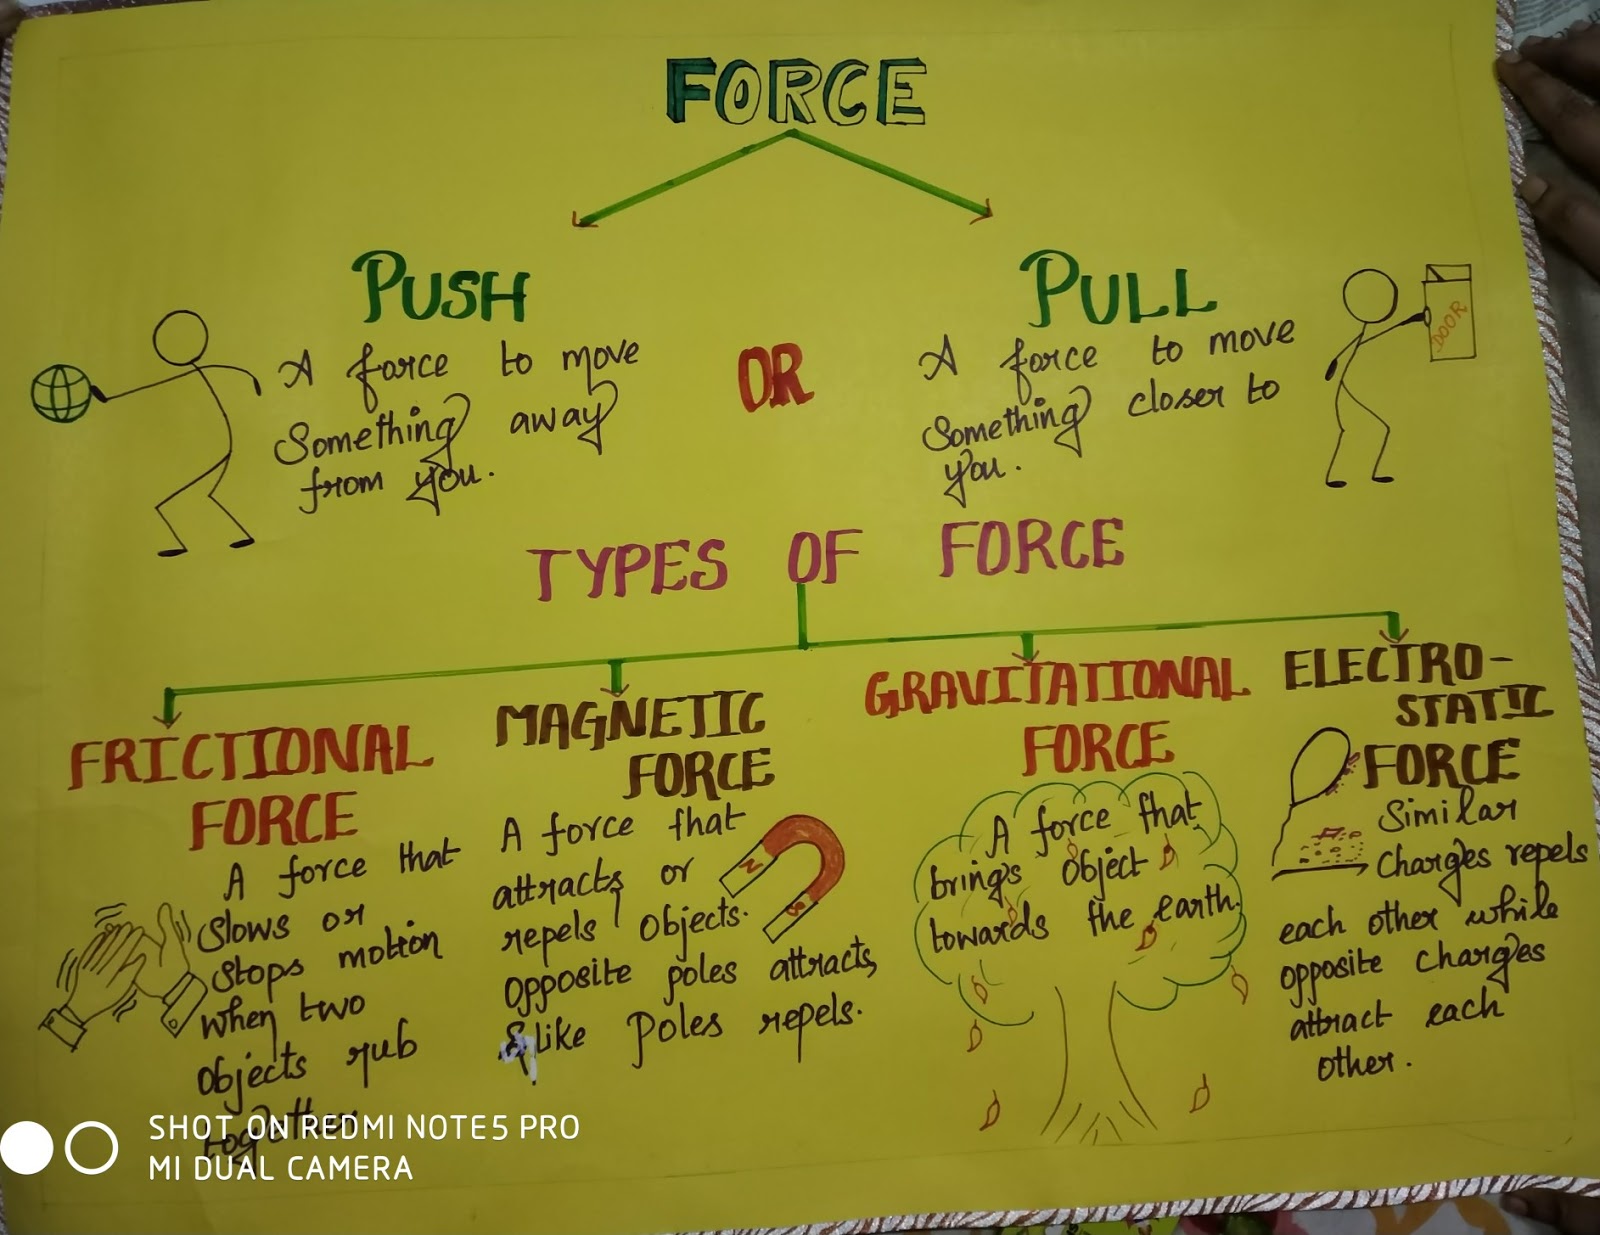 FORCE
PUSH
A force to move
Something away
from you.
OR
PULL
A force to move
Something closer to
you.
DOOR
TYPES OF FORCE
FRICTIONAL
FORCE
A force that
slows or
stops motion
when two
objects rub
together
MAGNETIC
FORCE
A force that
attracts or
repels objects.
opposite poles attracts,
& like Poles repels.
N
S
GRAVITATIONAL
FORCE
A force that
brings object
towards the earth.
ELECTRO-
STATIC
FORCE
Similar
Charges repels
each other while
opposite charges
attract each
other.
SHOT ON REDMI NOTE5 PRO
MI DUAL CAMERA